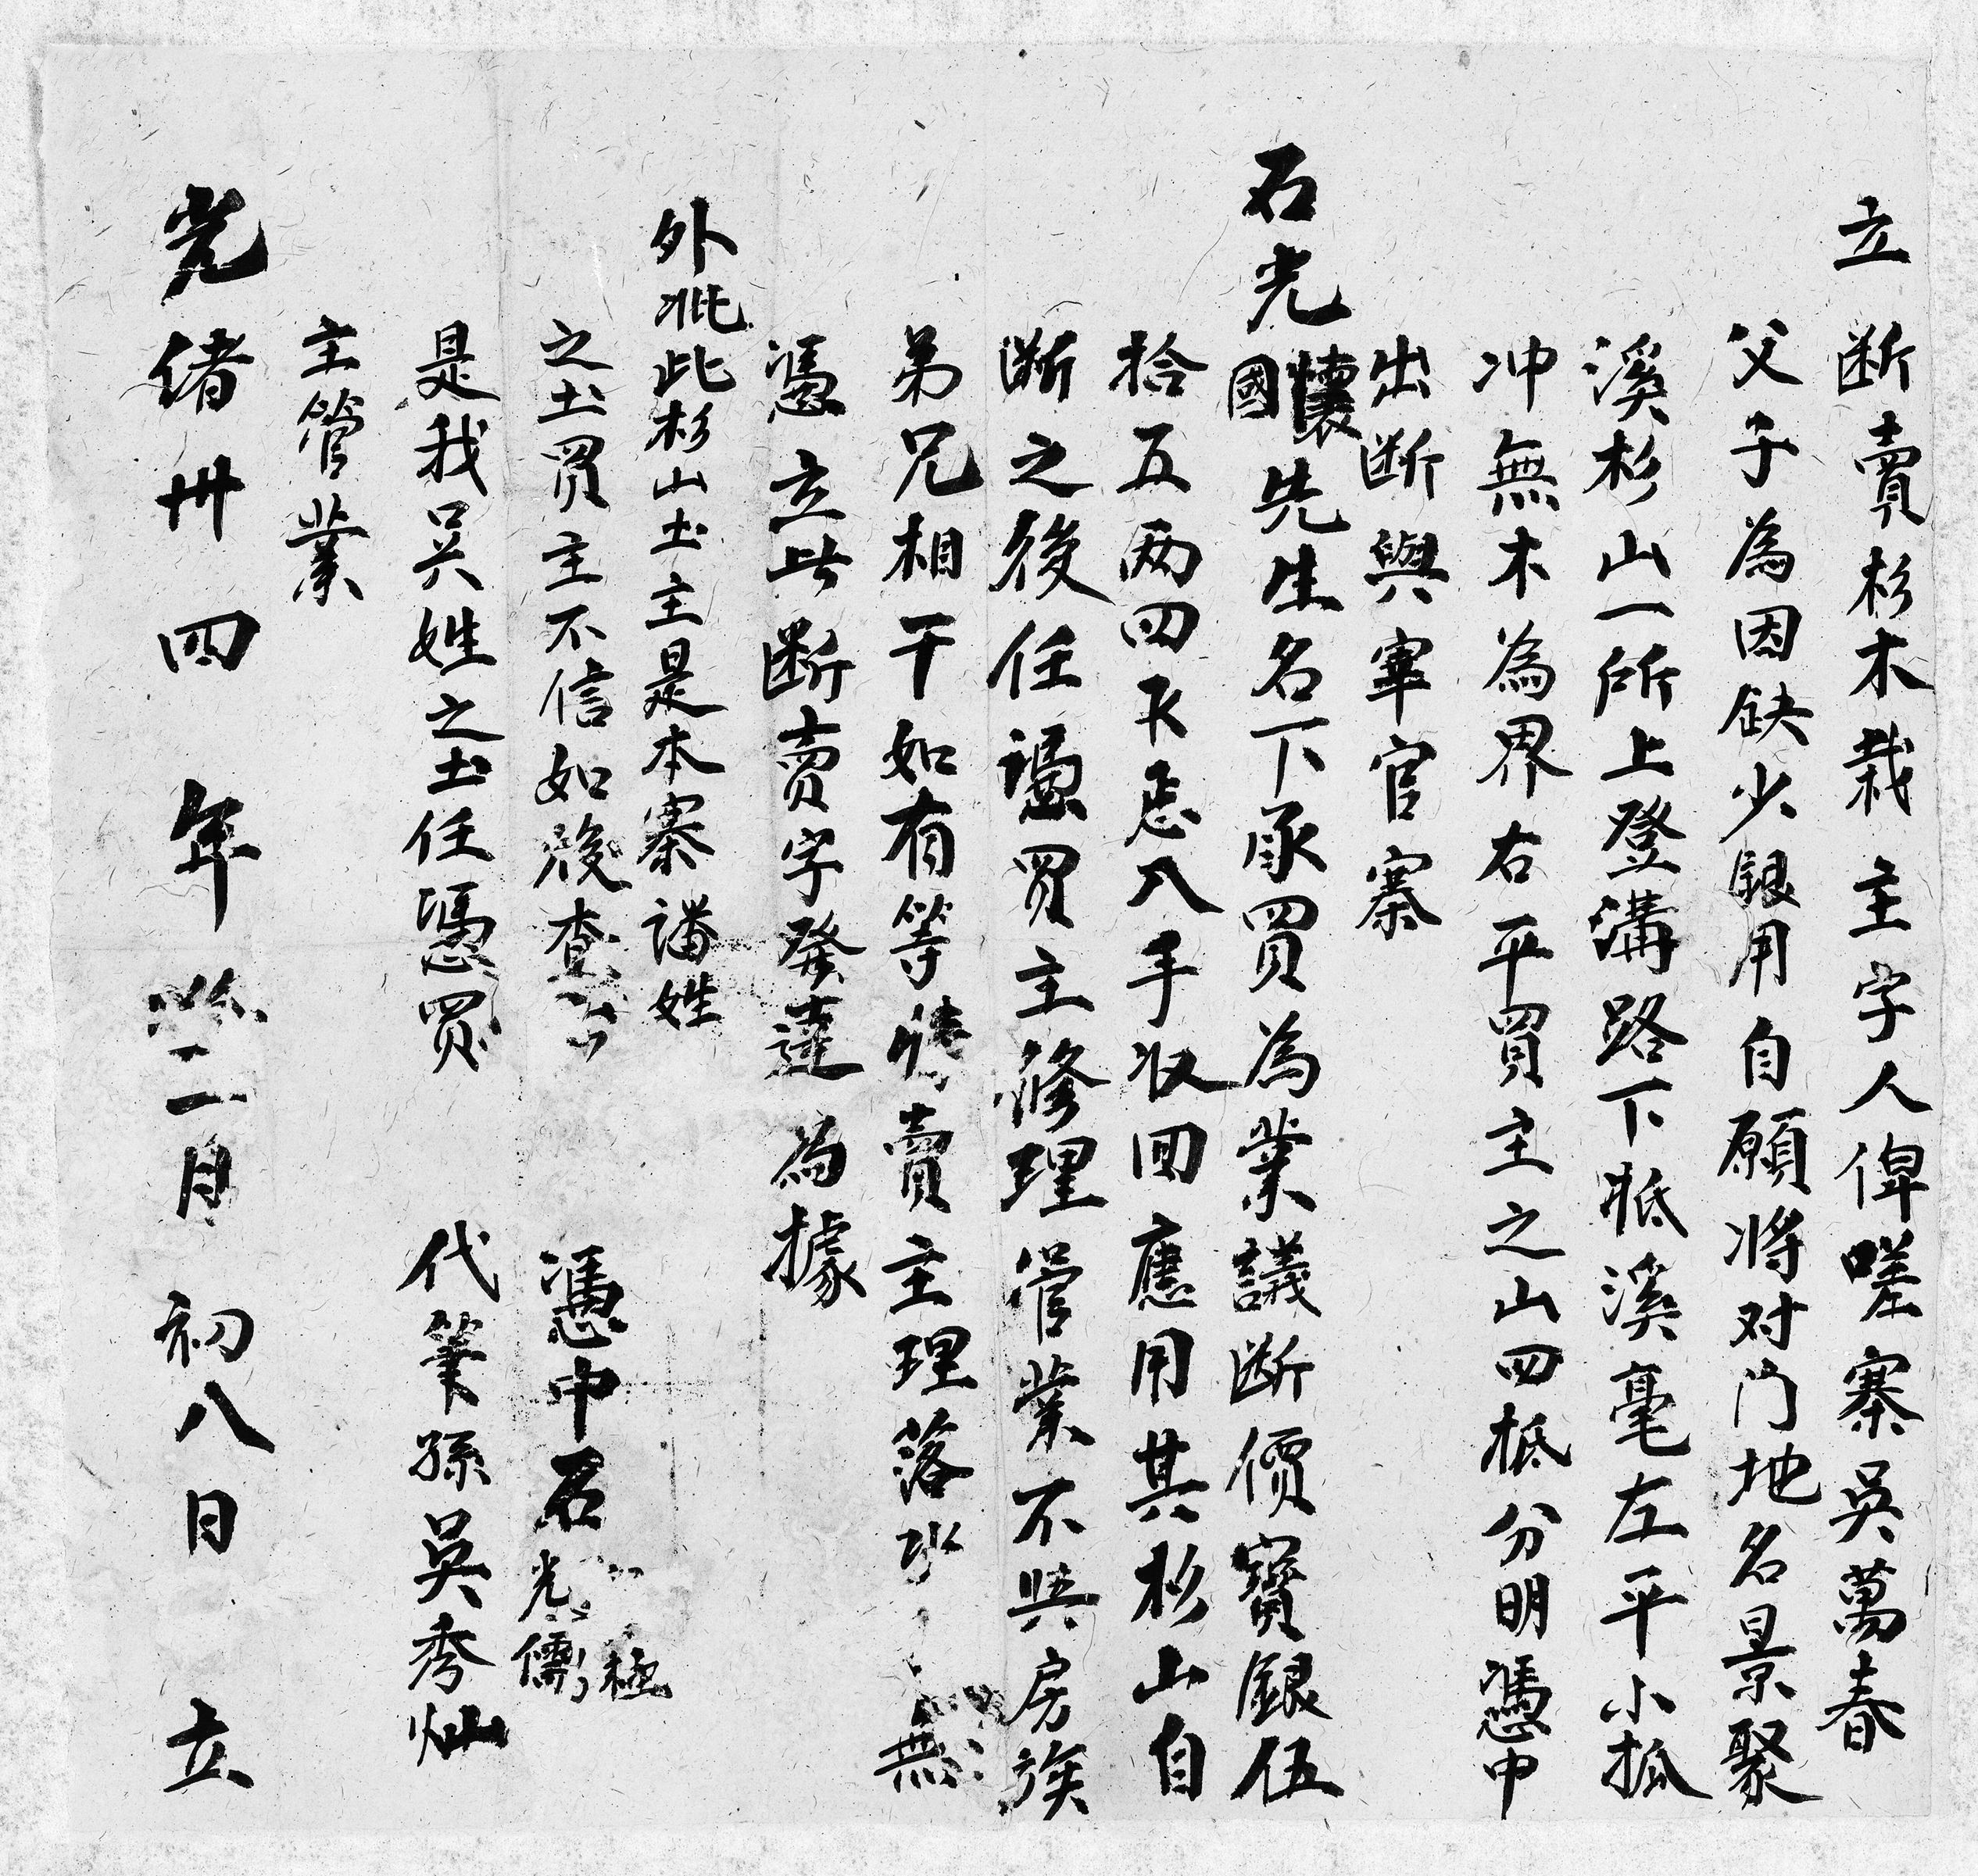 立断賣杉木栽主字人俾嗟寨吳萬春
父子為因缺少銀用自願将对门地名景聚
溪杉山一所上登溝路下胝溪毫左平小孤
冲無木為界右平買主之山四柢分明憑中
出断與宰官寨
石光懷國先生名下承買為業議断價寳銀伍
拾五两四下忘入手收回應用其杉山自
断之後任憑買主修理管業不与房族
弟兄相干如有等情賣主理落 無
憑立此断賣字發達為據
外批此杉山土主是本寨譜姓
之土買主不信如後查
是我吳姓之土任憑買
主管業
憑中石光儒極
代筆孫吳秀灿
光绪卅四年二月初八日立